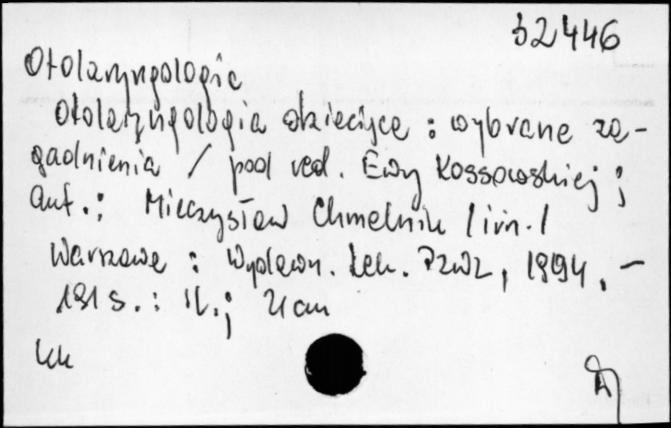 52446
Otolaryngologia
Otolaryngologia dziecięca : wybrane za-
gadnienia / pod red. Ewy Kossowskiej ;
aut. : Mieczysław Chmielnik /i in./
Warszawa : Wydawn. Lek. PZWL, 1994. –
181 s. : il. ; 21 cm
kk